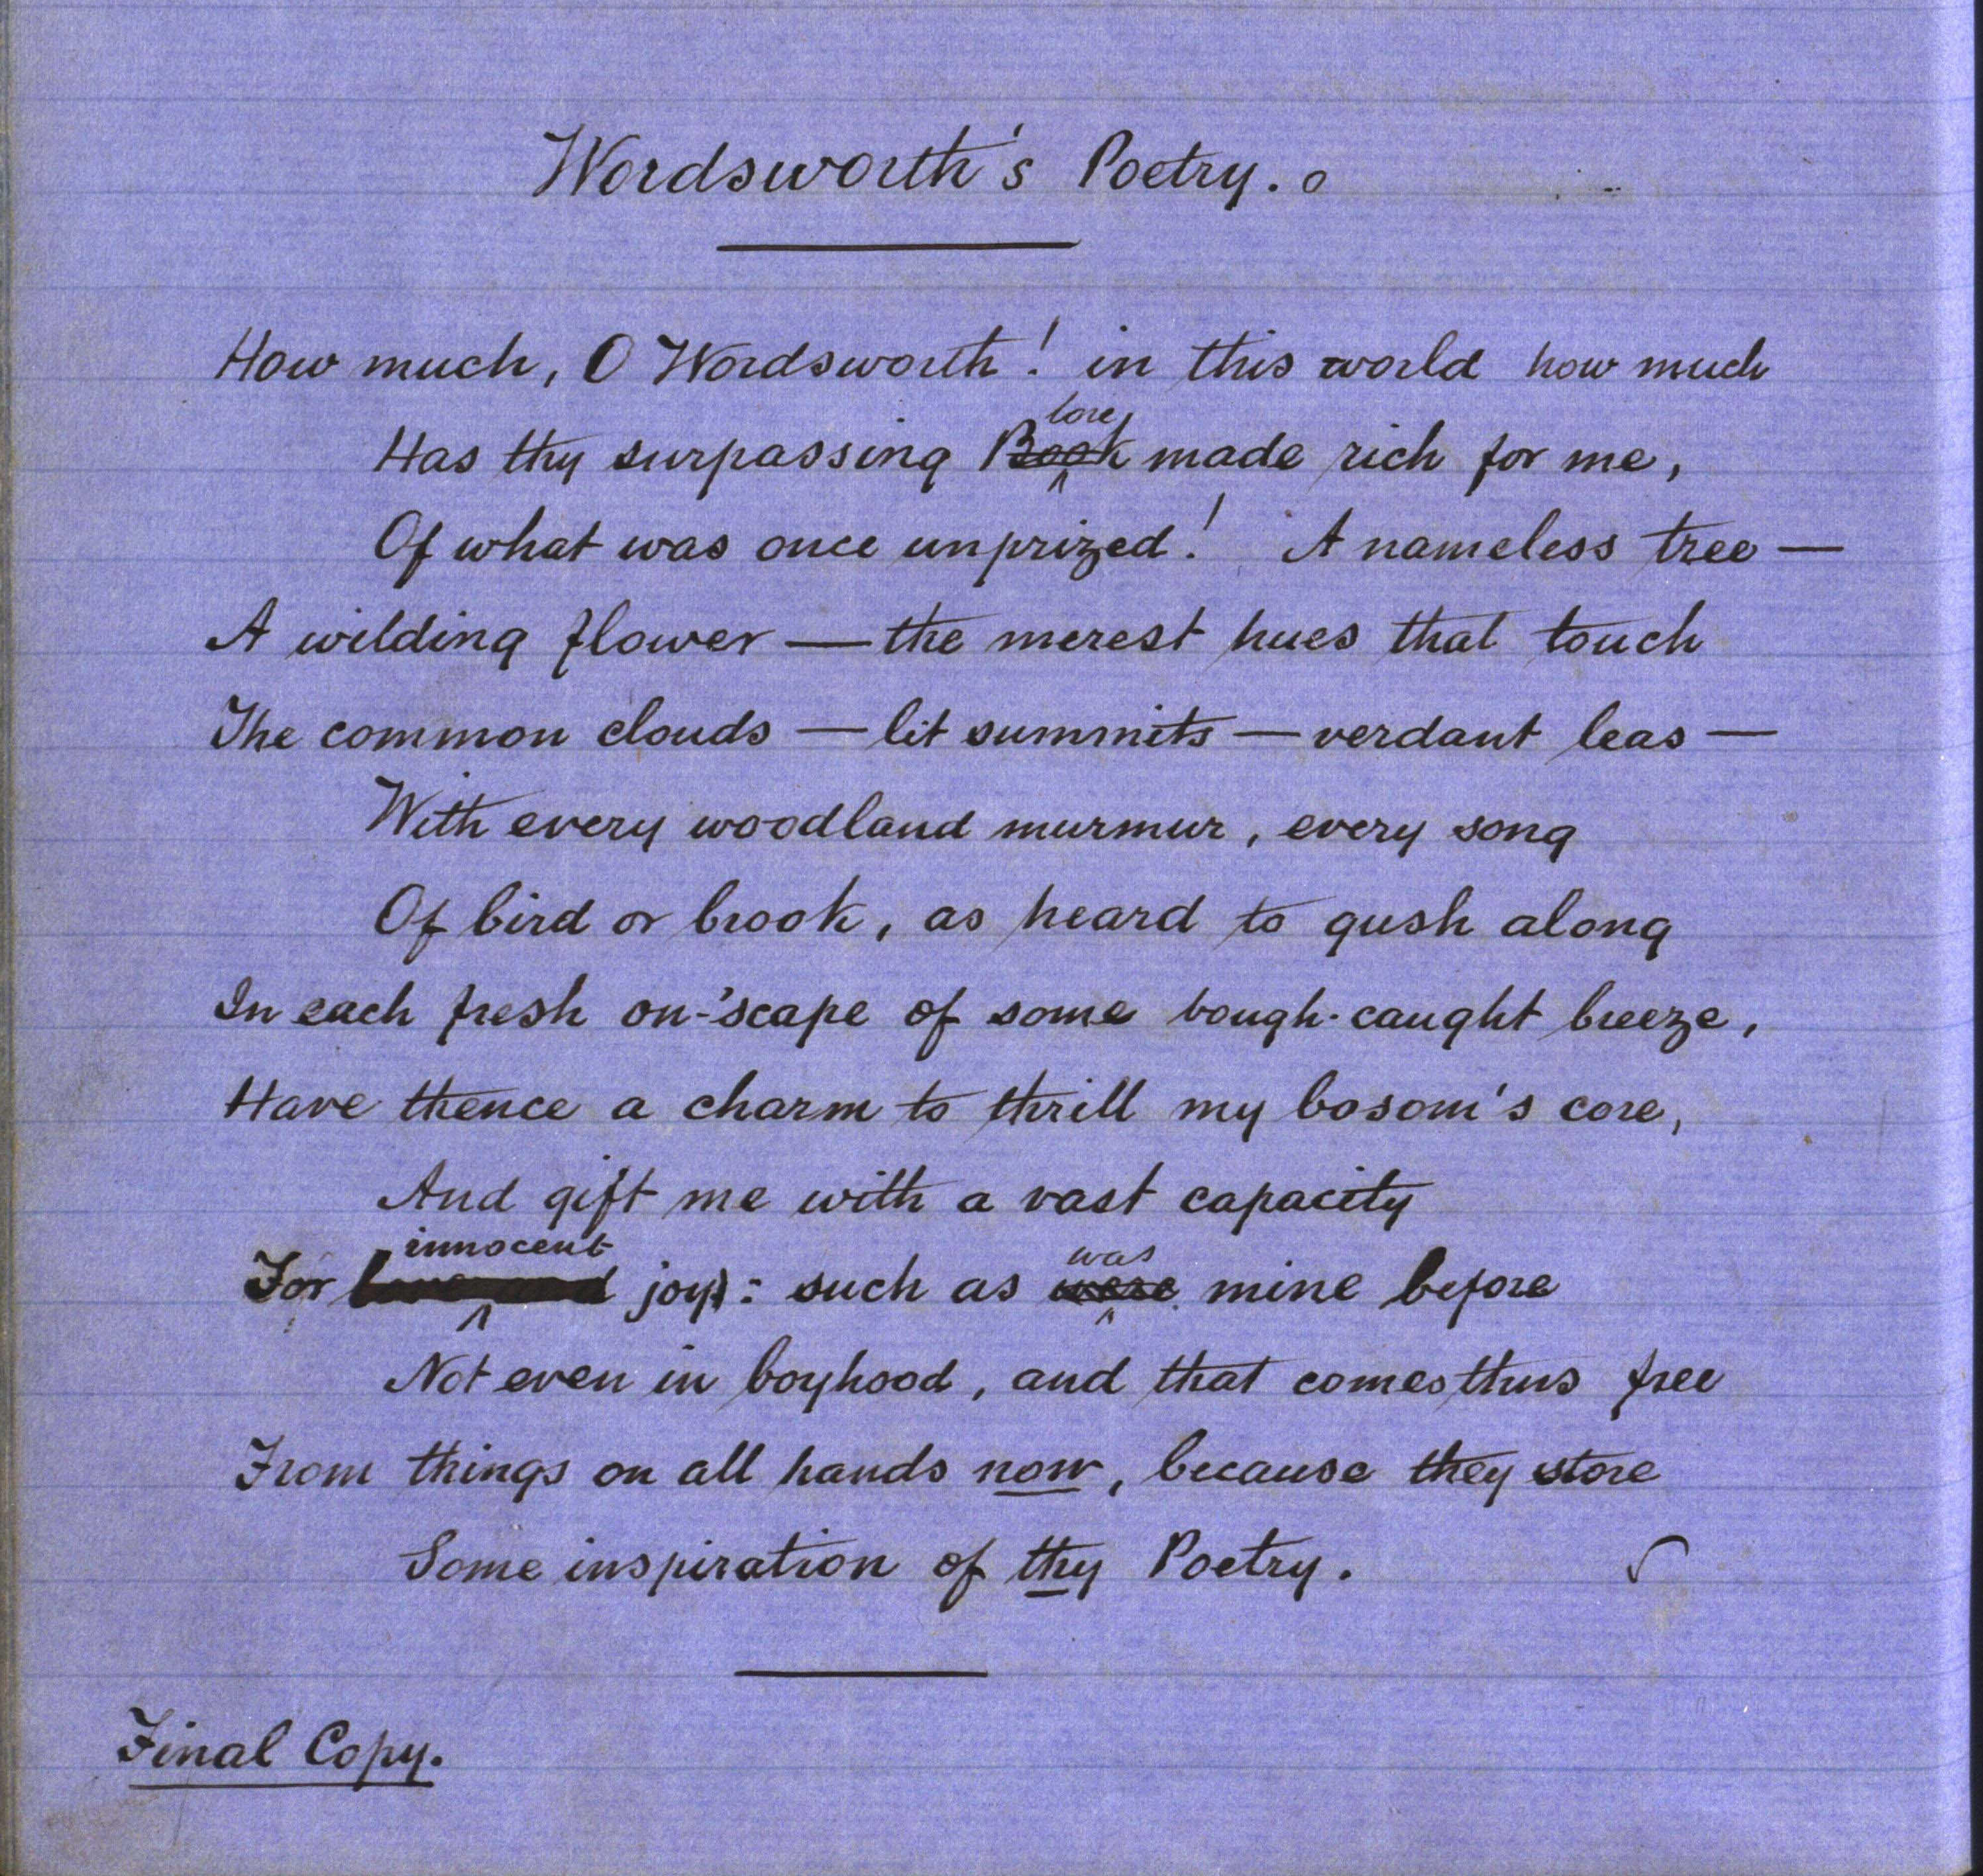 Wordsworth's Poetry. o
How much, O Wordsworth! in this world how much
lore
Has thy surpassing Book made rich for me,
Of what was once unprized! A nameless tree —
A wilding flower — the merest hues that touch
The common clouds — lit summits — verdant leas —
With every woodland murmur, every song
Of bird or brook, as heard to gush along
In each fresh on-'scape of some bough-caught breeze,
Have thence a charm to thrill my bosom's core,
And gift me with a vast capacity
innocent was
For love and joy: such as were mine before
Not even in boyhood, and that comes thus free
From things on all hands now, because they store
Some inspiration of thy Poetry.
Final Copy.